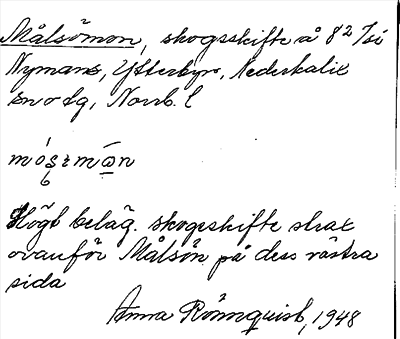 Målsömon, skogsskifte å 8² / si
Nymans, Ytterbyn, Nederkalix
sn o tg, Norrb. l
Högb beläg. skogsskifte strax
ovanför Målsön på dess västra
sida
Anna Rönnquist, 1948